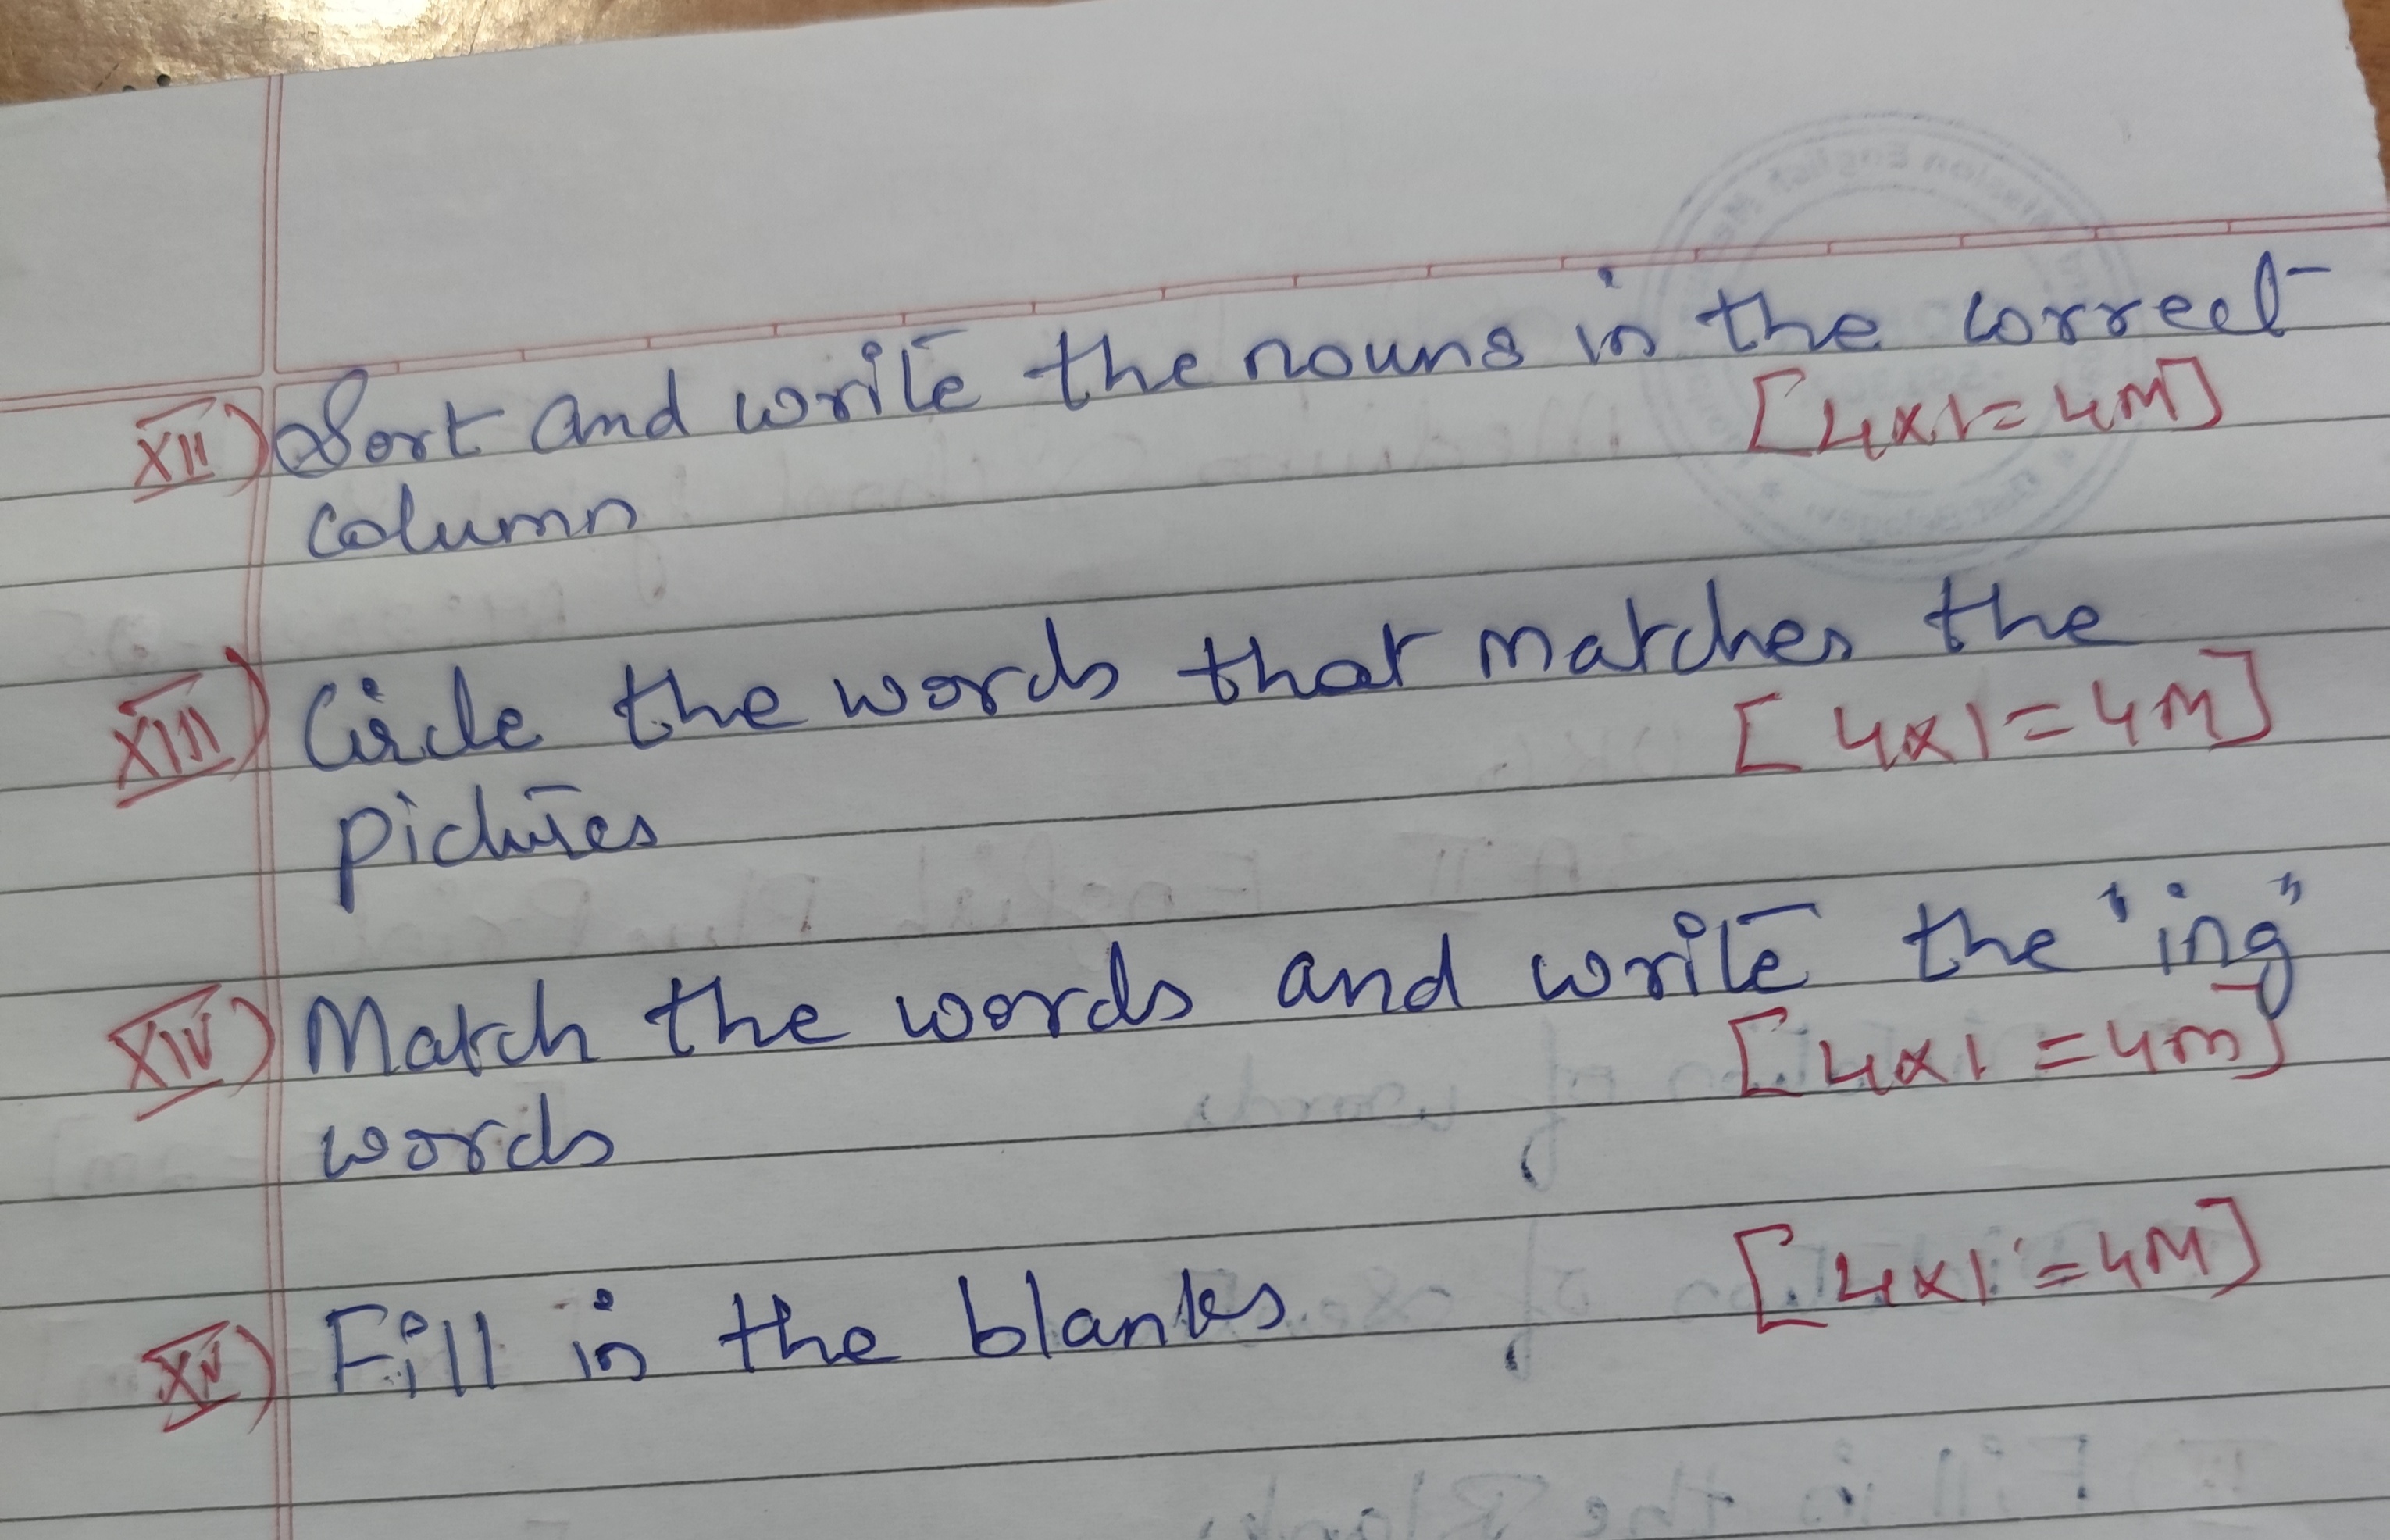 XII) Sort and write the nouns in the correct
column [4x1=4M]
XIII) Circle the words that matches the
pictures [4x1=4M]
XIV) Match the words and write the "ing"
words [4x1=4m]
XV) Fill in the blanks [4x1=4M]